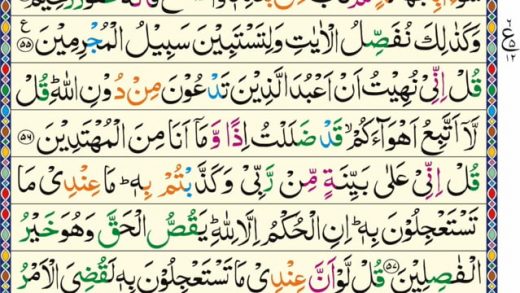 وَكَذٰلِكَ نُفَصِّلُ الْاٰيٰتِ وَلِتَسْتَبِيْنَ سَبِيْلُ الْمُجْرِمِيْنَ ﴿۵۵﴾ ع
قُلْ اِنِّىْ نُهِيْتُ اَنْ اَعْبُدَ الَّذِيْنَ تَدْعُوْنَ مِنْ دُوْنِ اللّٰهِ ؕ قُلْ
لَّاۤ اَتَّبِعُ اَهْوَآءَكُمْ ۙ قَدْ ضَلَلْتُ اِذًا وَّمَاۤ اَنَا مِنَ الْمُهْتَدِيْنَ ﴿۵۶﴾
قُلْ اِنِّىْ عَلٰى بَيِّنَةٍ مِّنْ رَّبِّىْ وَكَذَّبْتُمْ بِهٖ ؕ مَا عِنْدِىْ مَا
تَسْتَعْجِلُوْنَ بِهٖ ؕ اِنِ الْحُكْمُ اِلَّا لِلّٰهِ ؕ يَقُصُّ الْحَقَّ وَهُوَ خَيْرُ
الْفٰصِلِيْنَ ﴿۵۷﴾ قُلْ لَّوْ اَنَّ عِنْدِىْ مَا تَسْتَعْجِلُوْنَ بِهٖ لَقُضِىَ الْاَمْرُ